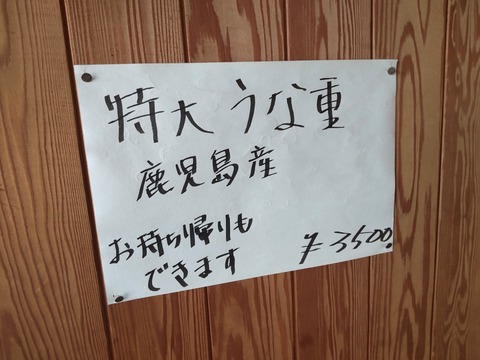 特大うな重
鹿児島産
お持ち帰りも
できます
¥3500